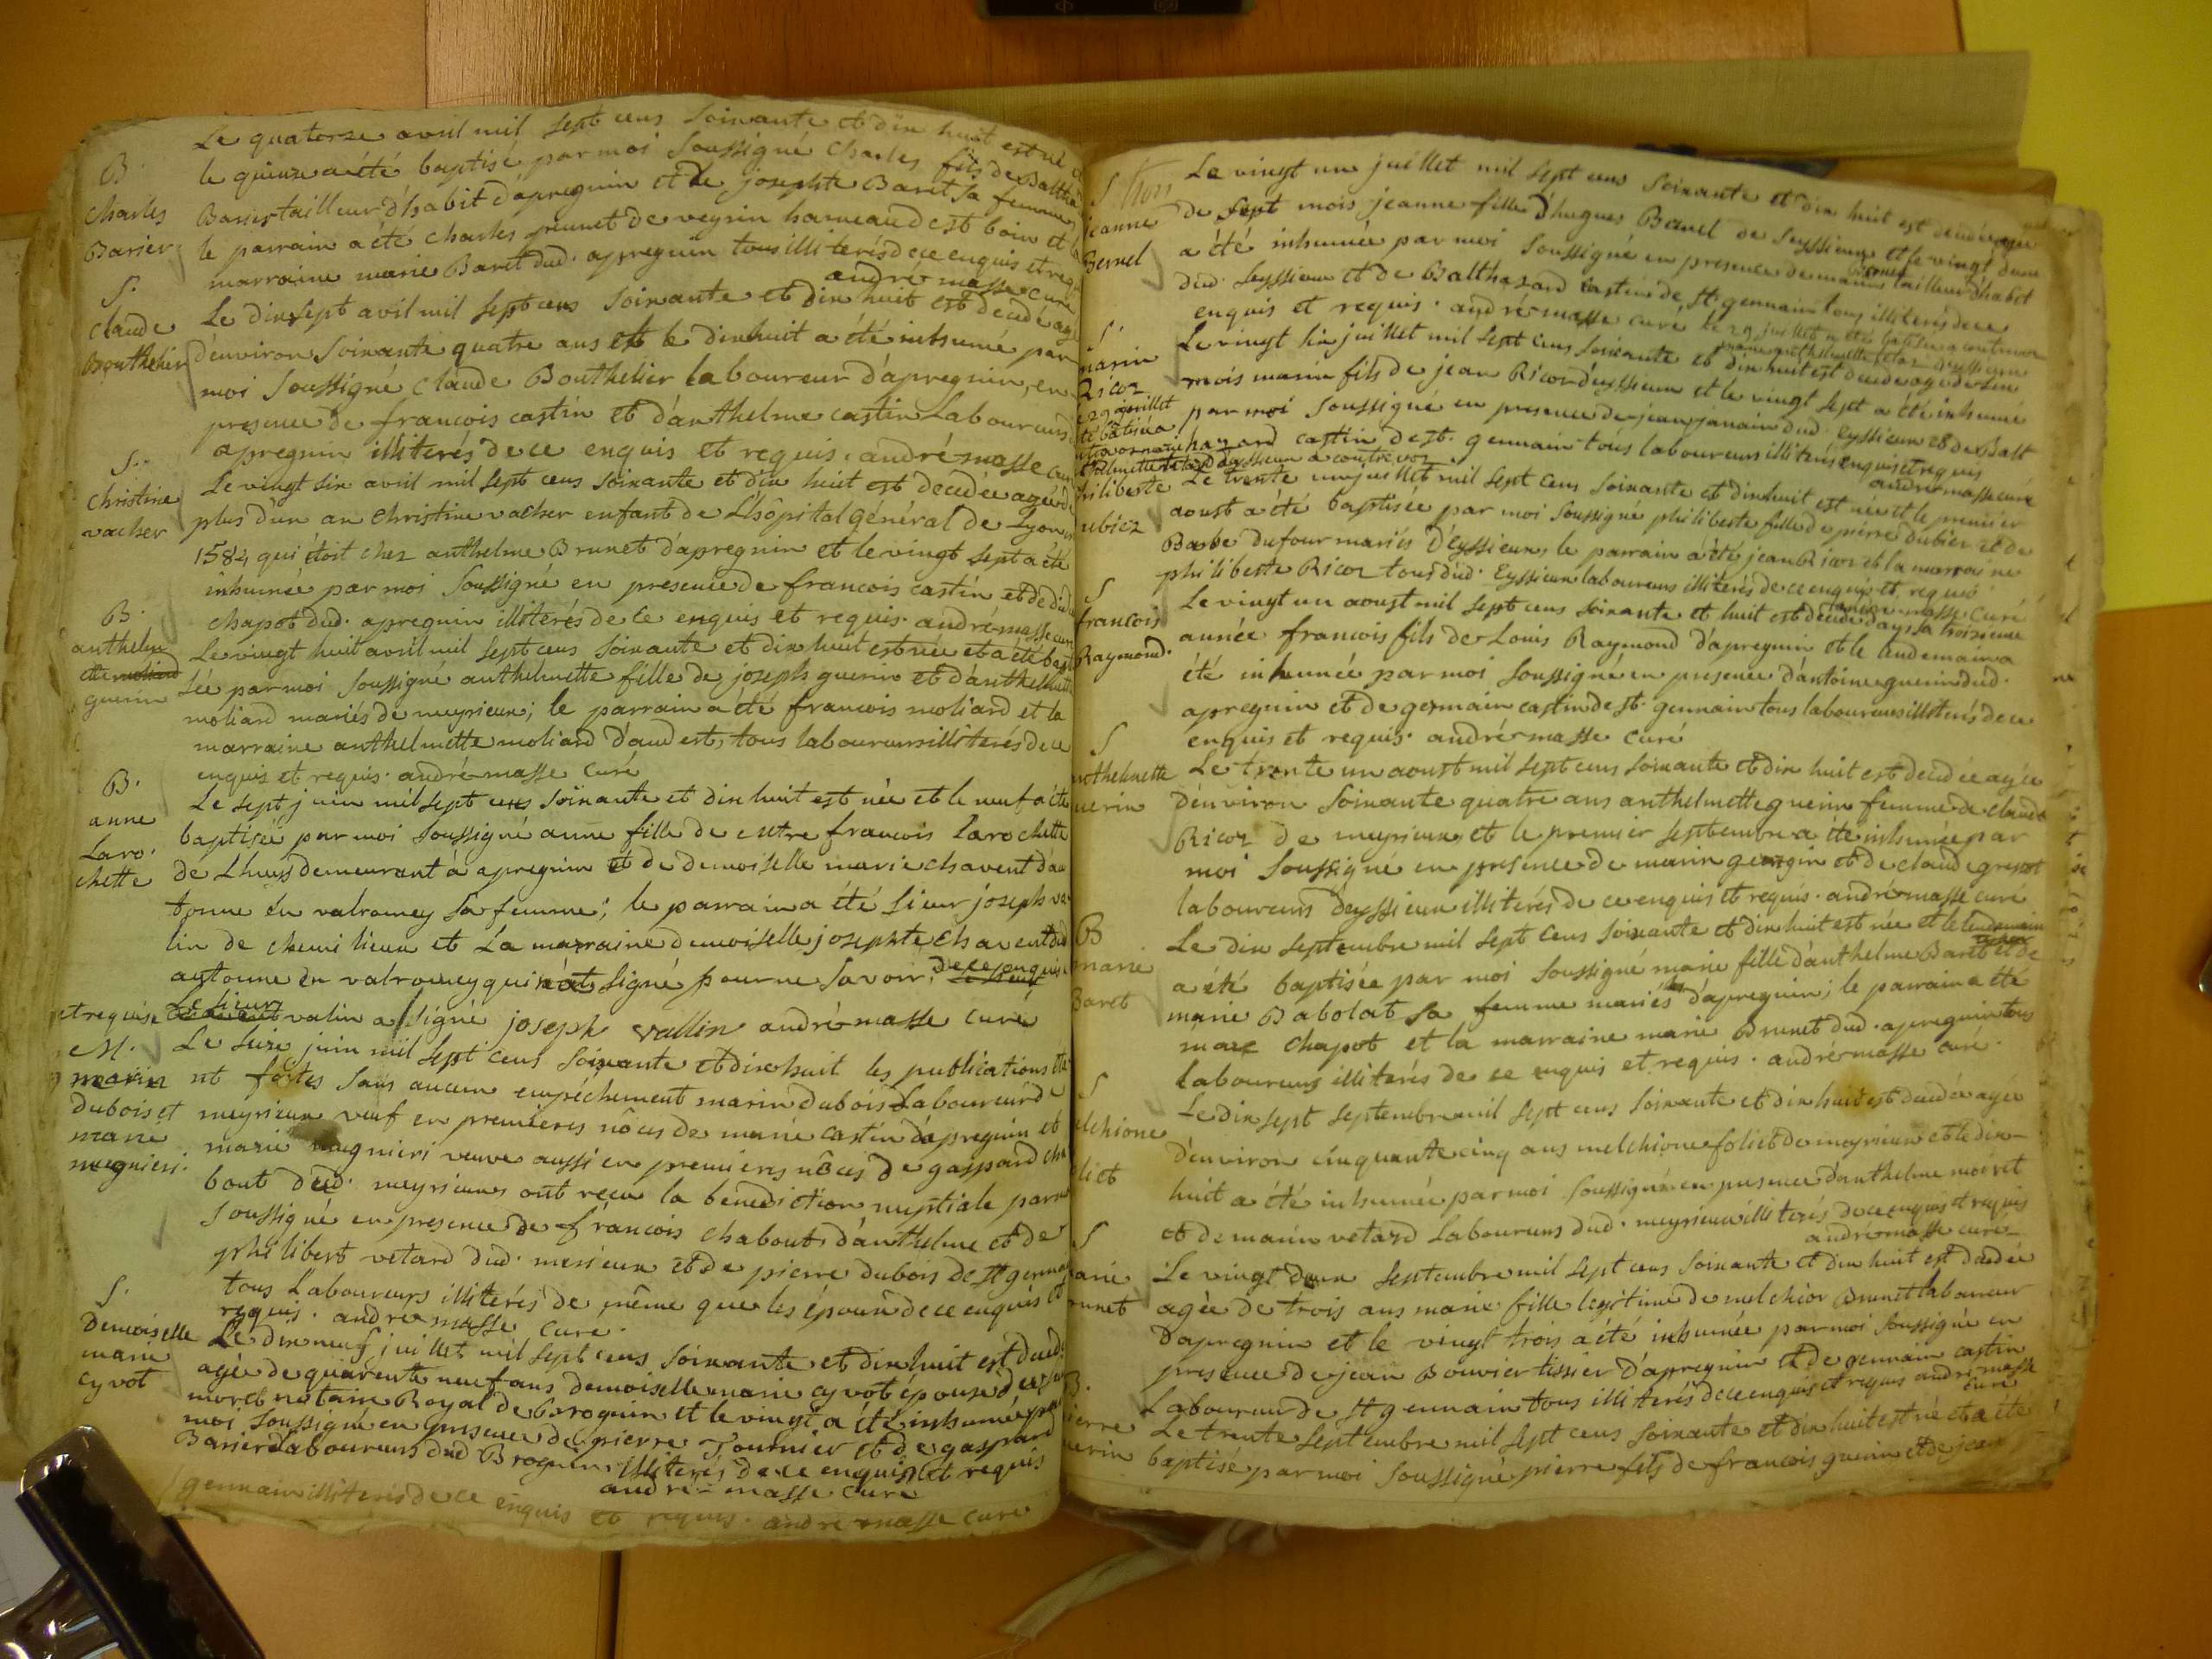 B.
Charles
Barier
Le quatorze avril mil sept cens soixante et dix huit est né et
le quinze a été baptisé par moi soussigné Charles fils de Baltha
Barier tailleur d'habit d'apregnin et de josephte Baret sa femme
le parrain a été Charles de veyrin hameau de st boin et la
marraine marie Baret dud. apregnin tous illiterés de ce enquis et req
andré masse curé
S.
Claude
Bouthelier
Le dix sept avil mil sept cens soixante et dix huit est decedé agé
d'environ soixante quatre ans et le dixhuit a été inhumé par
moi soussigné Claude Bouthelier laboureur d'apregnin, en
presence de francois castin et d'anthelme castin Laboureurs
apregnin illiterés de ce enquis et requis. andré masse curé
S.
Christine
vacher
Le vingt six avril mil sept cens soixante et dix huit est decedée agée de
plus d'un an christine vacher enfant de L'hôpital général de Lyon n
1584 qui étoit chez anthelme Brunet d'apregnin et le vingt sept a été
inhumée par moi soussigné en presence de francois castin et de
chapot dud. apregnin illiterés de ce enquis et requis. andré masse curé
B.
anthelm
ette moliard
guerin
Le vingt huit avril mil sept cens soixante et dix huit est née et a été bapt
sée par moi soussigné anthelmette fille de joseph guerin et d'anthelmette
moliard mariés de meyrieux; le parrain a été francois moliard et la
marraine anthelmette moliard d'aud est, tous laboureurs illiterés de ce
enquis et requis. andré masse curé
B.
anne
Laro.
chette
Le sept juin mil sept cens soixante et dix huit est née et le neuf a été
baptisée par moi soussigné anne fille de metre francois larochette
de Lhuys demeurant à apregnin et de demoiselle marie chavent d'au
tonne en valromey sa femme; le parrain a été sieur joseph va
lin de chemilieux et La marraine demoiselle josephte chavent dud
autonne en valromey qui n'a signé pour ne savoir, de ce enquise
et requise Le sieur valin a signé joseph vallin andré masse curé
M.
marin
dubois et
marie
mugnieri.
Le seize juin mil sept cens soixante et dix huit les publications été
nt faites sans aucun empéchement marin dubois Laboureur de
meyrieux veuf en premieres nôces de marie castin d'apregnin et
marie mugnieri veuve aussi en premieres nôces de gaspard cha
bout dud. meyrieux ont reçu la bénédiction nuptiale par moi
soussigné en presence de francois chabout, d'anthelme et de
philibert vetard dud. merieux et de pierre dubois de st germa
tous Laboureurs illiterés de même que les époux de ce enquis et
requis. andré masse curé.
S.
Demoiselle
marie
cyvot
Le dix neuf juillet mil sept cens soixante et dix huit est deced
agée de quarente neuf ans demoiselle marie cyvot épouse de
moret notaire Royal de brognin et le vingt a été inhumée par
moi soussigné en presence de pierre Tournier et de gaspard
Barier Laboureurs dud Brognin illiterés de ce enquis et requis
andré masse curé
germain illiterés de ce enquis et requis. andré masse curé
S
jeanne
Bernel
Le vingt un juillet mil sept cens soixante et dix huit est decedée agée
de sept mois jeanne fille d'hugues Banel de seyssieux et le vingt deux
a été inhumée par moi soussigné en presence de marin tailleur d'habit
dud. seyssieux et de Balthazard castin de st. germain tous illiterés de ce
enquis et requis. andré masse curé
S.
marin
Ricoz
Le vingt six juillet mil sept cens soixante et dix huit est decedé agé de six
mois marin fils de jean Ricoz d'eyssieux et le vingt sept a été inhumé
par moi soussigné en presence de jean janain dud. eyssieux et de Balt
hazard castin de st. germain tous laboureurs illiterés enquis et requis
andré masse curé
philiberte
dubiez
Le trente un juillet mil sept cens soixante et dixhuit est née et le premier
aoust a été baptisée par moi soussigné philiberte fille de pierre dubiez et de
Babe Dufour mariés d'Eyssieux, le parrain a été jean Ricoz et la marraine
philiberte Ricoz tous dud. Eyssieux laboureurs illiterés de ce enquis et requis
andré masse curé
S
francois
Raymond.
Le vingt un aoust mil sept cens soixante et huit est decedé dans sa troisieme
année francois fils de Louis Raymond d'apregnin et le lendemain a
été inhumée par moi soussigné en presence d'antoine guerin dud.
apregnin et de germain castin de st. germain tous laboureurs illiterés de ce
enquis et requis. andré masse curé
S
anthelmette
guerin
Le trente un aoust mil sept cens soixante et dix huit est decedée agée
d'environ soixante quatre ans anthelmette guerin femme de claude
Ricoz de meyrieux, et le premier septembre a été inhumée par
moi soussigné en presence de marin gengin et de claude
laboureurs d'eyssieux illiterés de ce enquis et requis. andré masse curé
B
marie
Baret
Le dix septembre mil sept cens soixante et dix huit est née et le lendemain
a été baptisée par moi soussigné marie fille d'anthelme Baret et de
marie Babolat sa femme mariés d'apregnin; le parrain a été
marc chapot et la marraine marie Brunet dud. apregnin tous
laboureurs illiterés de ce enquis et requis. andré masse curé.
S
elchione
liet
Le dix sept septembre mil sept cens soixante et dix huit est decedée agée
d'environ cinquante cinq ans melchione foliet de meyrieux et le dix-
huit a été inhumée par moi soussigné en presence d'anthelme moiret
et de marin vetard Laboureurs dud. meyrieux illiterés de ce enquis et requis
andré masse curé
S
arie
runet
Le vingt deux septembre mil sept cens soixante et dix huit est decedée
agée de trois ans marie fille legitime de melchior Brunet laboureur
d'apregnin et le vingt trois a été inhumée par moi soussigné en
presence de jean Bouvier tissier d'apregnin et de germain castin
Laboureur de st germain tous illiterés de ce enquis et requis andré masse
curé
B.
ierre
uerin
Le trente septembre mil sept cens soixante et dix huit est né et a été
baptisé par moi soussigné pierre fils de francois guerin et de jean